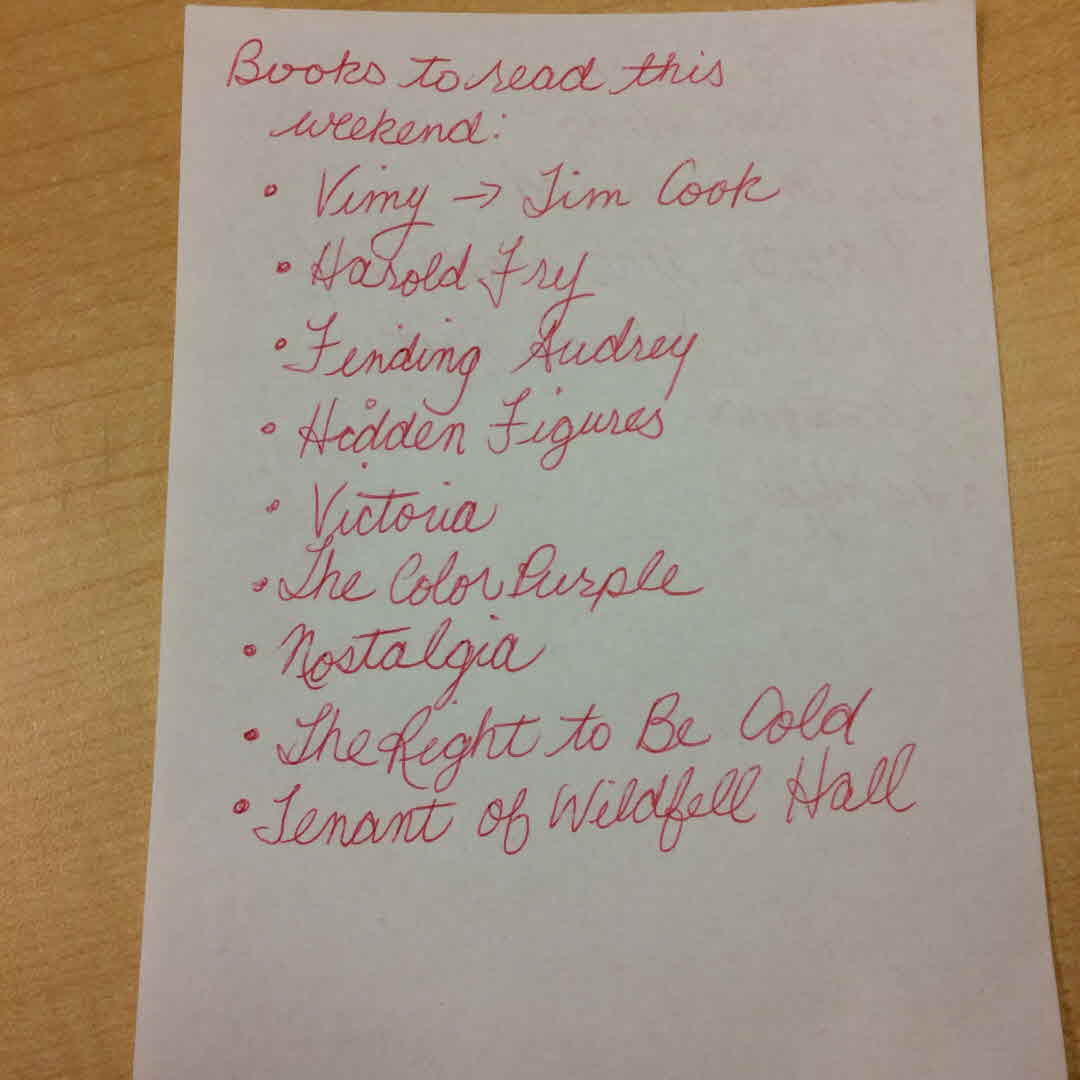 Books to read this
weekend:
• Vimy → Tim Cook
• Harold Fry
• Finding Audrey
• Hidden Figures
• Victoria
• The Color Purple
• Nostalgia
• The Right to Be Cold
• Tenant of Wildfell Hall